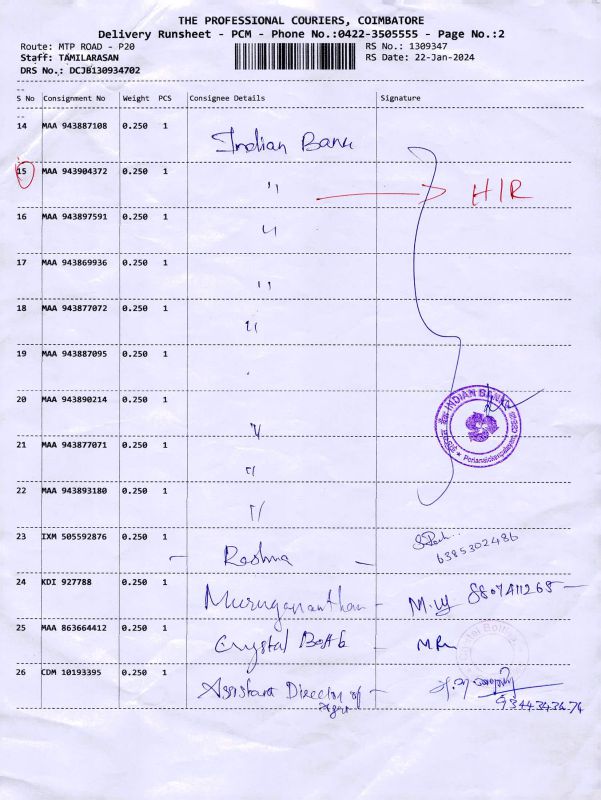 THE PROFESSIONAL COURIERS, COIMBATORE
Delivery Runsheet - PCM - Phone No.:0422-3505555 - Page No.:2
Route: MTP ROAD - P20
RS No.: 1309347
Staff: TAMILARASAN
RS Date: 22-Jan-2024
DRS No.: DCJB130934702
S No Consignment No Weight PCS Consignee Details Signature
14 MAA 943887108 0.250 1 Indian Bank
15 MAA 943904372 0.250 1 " H/R
16 MAA 943897591 0.250 1 "
17 MAA 943869936 0.250 1 "
18 MAA 943877072 0.250 1 "
19 MAA 943887095 0.250 1
20 MAA 943890214 0.250 1 "
INDIAN BANK
21 MAA 943877071 0.250 1 "
22 MAA 943893180 0.250 1 "
23 IXM 505592876 0.250 1 - Reshma -
6385302486
24 KDI 927788 0.250 1 Murugananthan -
25 MAA 863664412 0.250 1 Crystal -
26 CDM 10193395 0.250 1 Assistant Director of -